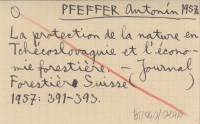 PFEFFER Antonín 1957
La protection de la nature en
Tchécoslovaquie et l'écono-
mie forestière. — Journal
Forestier Suisse ( )
1957: 391-393.